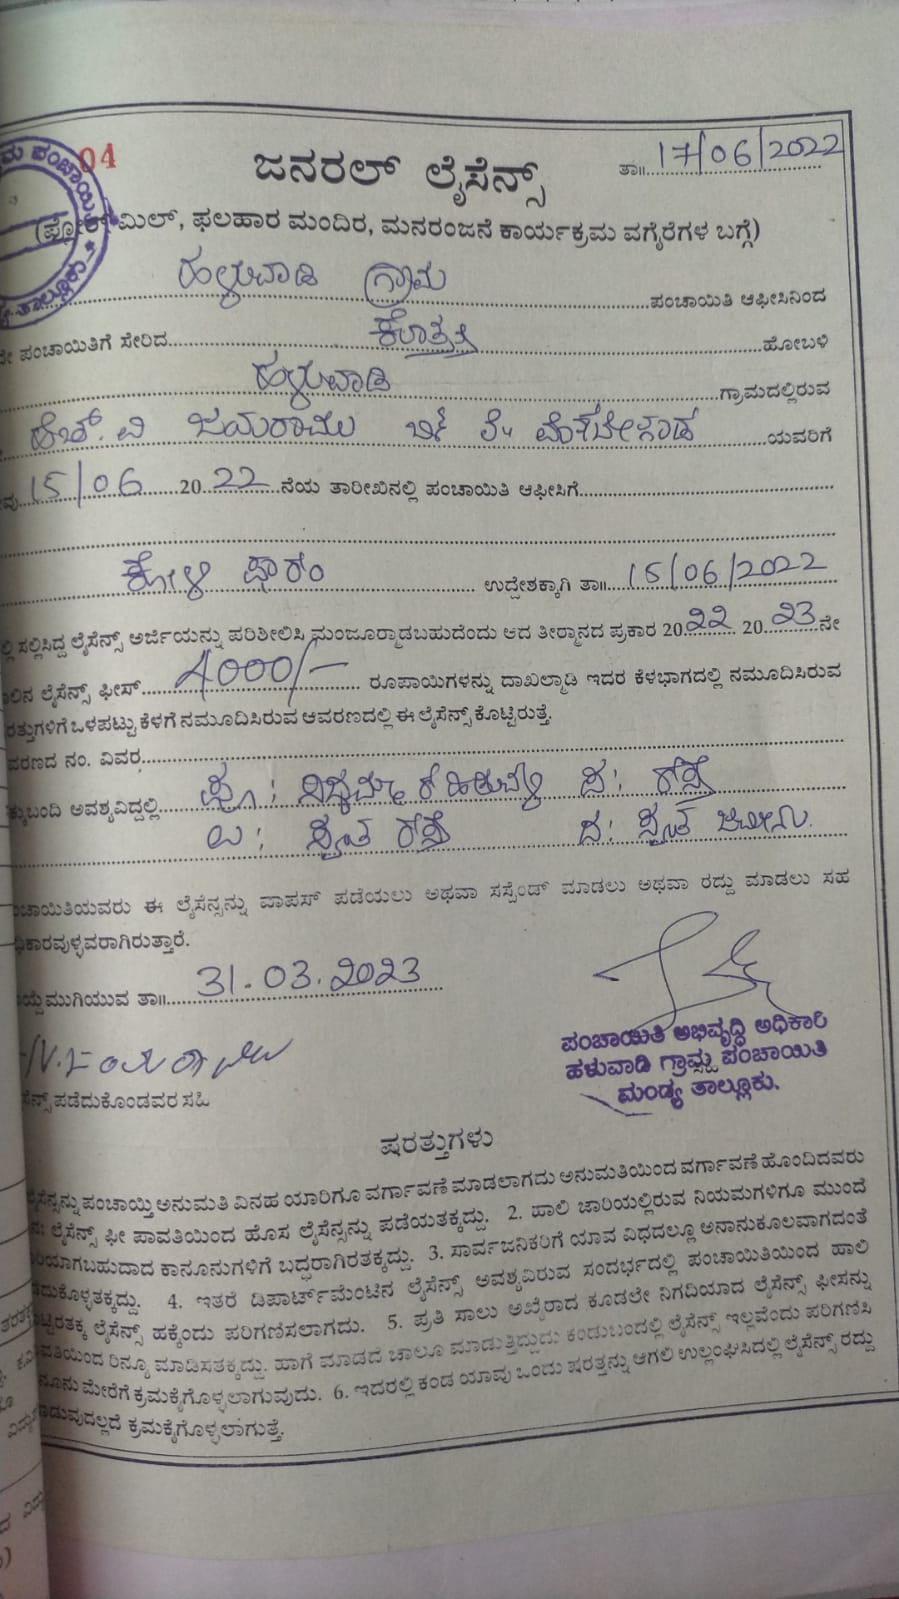 04
ಜನರಲ್ ಲೈಸೆನ್ಸ್
ತಾ॥ 17/06/2022
(ಫ್ಲೋರ್ ಮಿಲ್, ಫಲಹಾರ ಮಂದಿರ, ಮನರಂಜನೆ ಕಾರ್ಯಕ್ರಮ ವಗೈರೆಗಳ ಬಗ್ಗೆ)
ಹಳುವಾಡಿ ಗ್ರಾಮ ಪಂಚಾಯಿತಿ ಆಫೀಸಿನಿಂದ
ಪಂಚಾಯಿತಿಗೆ ಸೇರಿದ ಕೊತ್ತತ್ತಿ ಹೋಬಳಿ
ಹಳುವಾಡಿ ಗ್ರಾಮದಲ್ಲಿರುವ
ಹೆಚ್. ವಿ ಜಯರಾಮು ಬಿನ್ ಯವರಿಗೆ
15/06 2022 ನೆಯ ತಾರೀಖಿನಲ್ಲಿ ಪಂಚಾಯಿತಿ ಆಫೀಸಿಗೆ
ಕೋಳಿ ಫಾರಂ ಉದ್ದೇಶಕ್ಕಾಗಿ ತಾ॥ 15/06/2022
ಸಲ್ಲಿಸಿದ್ದ ಲೈಸೆನ್ಸ್ ಅರ್ಜಿಯನ್ನು ಪರಿಶೀಲಿಸಿ ಮಂಜೂರ್ಮಾಡಬಹುದೆಂದು ಆದ ತೀರ್ಮಾನದ ಪ್ರಕಾರ 2022 2023ನೇ
ಲೈಸೆನ್ಸ್ ಫೀಸ್ 4000/- ರೂಪಾಯಿಗಳನ್ನು ದಾಖಲ್ಮಾಡಿ ಇದರ ಕೆಳಭಾಗದಲ್ಲಿ ನಮೂದಿಸಿರುವ
ಒಳಪಟ್ಟು ಕೆಳಗೆ ನಮೂದಿಸಿರುವ ಆವರಣದಲ್ಲಿ ಈ ಲೈಸೆನ್ಸ್ ಕೊಟ್ಟಿರುತ್ತೆ.
ನಂ. ವಿವರ
ಅವಶ್ಯವಿದ್ದಲ್ಲಿ ಪೂ: ಪ: ರಸ್ತೆ
ಉ: ಸ್ವಂತ ರಸ್ತೆ ದ: ಸ್ವಂತ ಜಮೀನು.
ಈ ಲೈಸೆನ್ಸನ್ನು ವಾಪಸ್ ಪಡೆಯಲು ಅಥವಾ ಸಸ್ಪೆಂಡ್ ಮಾಡಲು ಅಥವಾ ರದ್ದು ಮಾಡಲು ಸಹ
ಮುಗಿಯುವ ತಾ॥ 31.03.2023
ಪಂಚಾಯಿತಿ ಅಭಿವೃದ್ಧಿ ಅಧಿಕಾರಿ
ಹಳುವಾಡಿ ಗ್ರಾಮ ಪಂಚಾಯಿತಿ
ಮಂಡ್ಯ ತಾಲ್ಲೂಕು.
ಪಡೆದುಕೊಂಡವರ ಸಹಿ
ಷರತ್ತುಗಳು
ಪಂಚಾಯ್ತಿ ಅನುಮತಿ ವಿನಹ ಯಾರಿಗೂ ವರ್ಗಾವಣೆ ಮಾಡಲಾಗದು ಅನುಮತಿಯಿಂದ ವರ್ಗಾವಣೆ ಹೊಂದಿದವರು
ಲೈಸೆನ್ಸ್ ಫೀ ಪಾವತಿಯಿಂದ ಹೊಸ ಲೈಸೆನ್ಸನ್ನು ಪಡೆಯತಕ್ಕದ್ದು. 2. ಹಾಲಿ ಜಾರಿಯಲ್ಲಿರುವ ನಿಯಮಗಳಿಗೂ ಮುಂದೆ
ಕಾನೂನುಗಳಿಗೆ ಬದ್ಧರಾಗಿರತಕ್ಕದ್ದು. 3. ಸಾರ್ವಜನಿಕರಿಗೆ ಯಾವ ವಿಧದಲ್ಲೂ ಅನಾನುಕೂಲವಾಗದಂತೆ
4. ಇತರೆ ಡಿಪಾರ್ಟ್‌ಮೆಂಟಿನ ಲೈಸೆನ್ಸ್ ಅವಶ್ಯವಿರುವ ಸಂದರ್ಭದಲ್ಲಿ ಪಂಚಾಯಿತಿಯಿಂದ ಹಾಲಿ
ಲೈಸೆನ್ಸ್ ಹಕ್ಕೆಂದು ಪರಿಗಣಿಸಲಾಗದು. 5. ಪ್ರತಿ ಸಾಲು ಅಖೈರಾದ ಕೂಡಲೇ ನಿಗದಿಯಾದ ಲೈಸೆನ್ಸ್ ಫೀಸನ್ನು
ರಿನ್ಯೂ ಮಾಡಿಸತಕ್ಕದ್ದು. ಹಾಗೆ ಮಾಡದೆ ಚಾಲೂ ಮಾಡುತ್ತಿದ್ದುದು ಕಂಡುಬಂದಲ್ಲಿ ಲೈಸೆನ್ಸ್ ಇಲ್ಲವೆಂದು ಪರಿಗಣಿಸಿ
ಮೇರೆಗೆ ಕ್ರಮಕೈಗೊಳ್ಳಲಾಗುವುದು. 6. ಇದರಲ್ಲಿ ಕಂಡ ಯಾವು ಒಂದು ಷರತ್ತನ್ನು ಆಗಲಿ ಉಲ್ಲಂಘಿಸಿದಲ್ಲಿ ಲೈಸೆನ್ಸ್ ರದ್ದು
ಕ್ರಮಕೈಗೊಳ್ಳಲಾಗುತ್ತೆ.